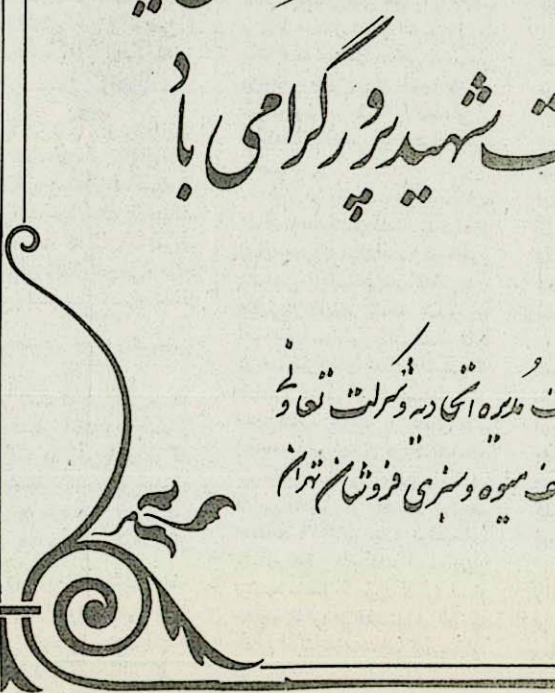 شهیدپرور گرامی باد
مدیره اتحادیه و شرکت تعاونی
میوه و سبزی فروشان تهران